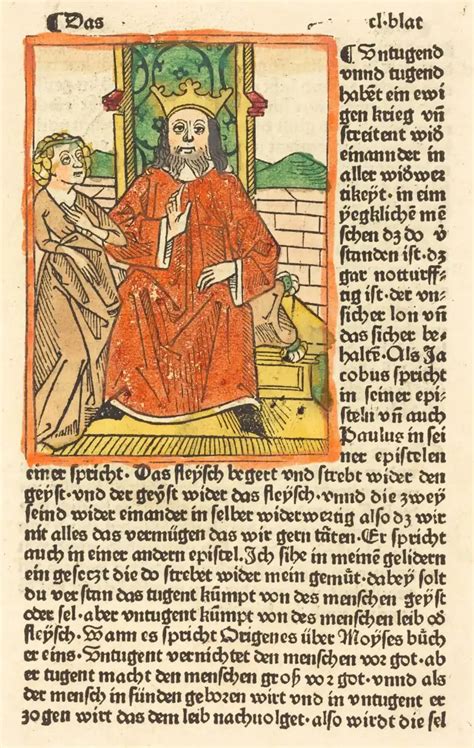 ¶ Das
cl·blat
¶ Untugend
vnnd tugend
habēt ein ewi
gen krieg vn̄
streitent wid̄
einannder in
aller wid̄wer
tikeyt · in eim
yegklichē mē
schen dz do v̄
standen ist · dz
gar notturff⸗
tig ist · der vn⸗
sicher lon vn̄
das sicher be⸗
haltē · Als Ja
cobus spricht
in seiner epi⸗
steln vn̄ auch
Paulus in sei
ner epistelen
einer spricht · Das fleysch begert vnd strebt wider den
geyst · vnd der geyst wider das fleysch · vnnd die zwey
seind wider einander in selber widerwertig also dz wir
nit alles das vermügen das wir gern tåten · Er spricht
auch in einer andern epistel · Ich sihe in meinē gelidern
ein geseczt die do strebet wider mein gemůt · dabey solt
du verstan das tugent kūmpt von des menschen geyst
oder sel · aber vntugent kūmpt von des menschen leib od̄
fleysch · Wann es spricht Origenes über Moyses bůch
er eins · Untugent vernichtet den menschen vor got · ab
er tugent macht den menschen groß vor got · vnnd als
der mensch in sünden geboren wirt vnd in vntugent er
zogen wirt das dem leib nachuolget · also wirdt die sel